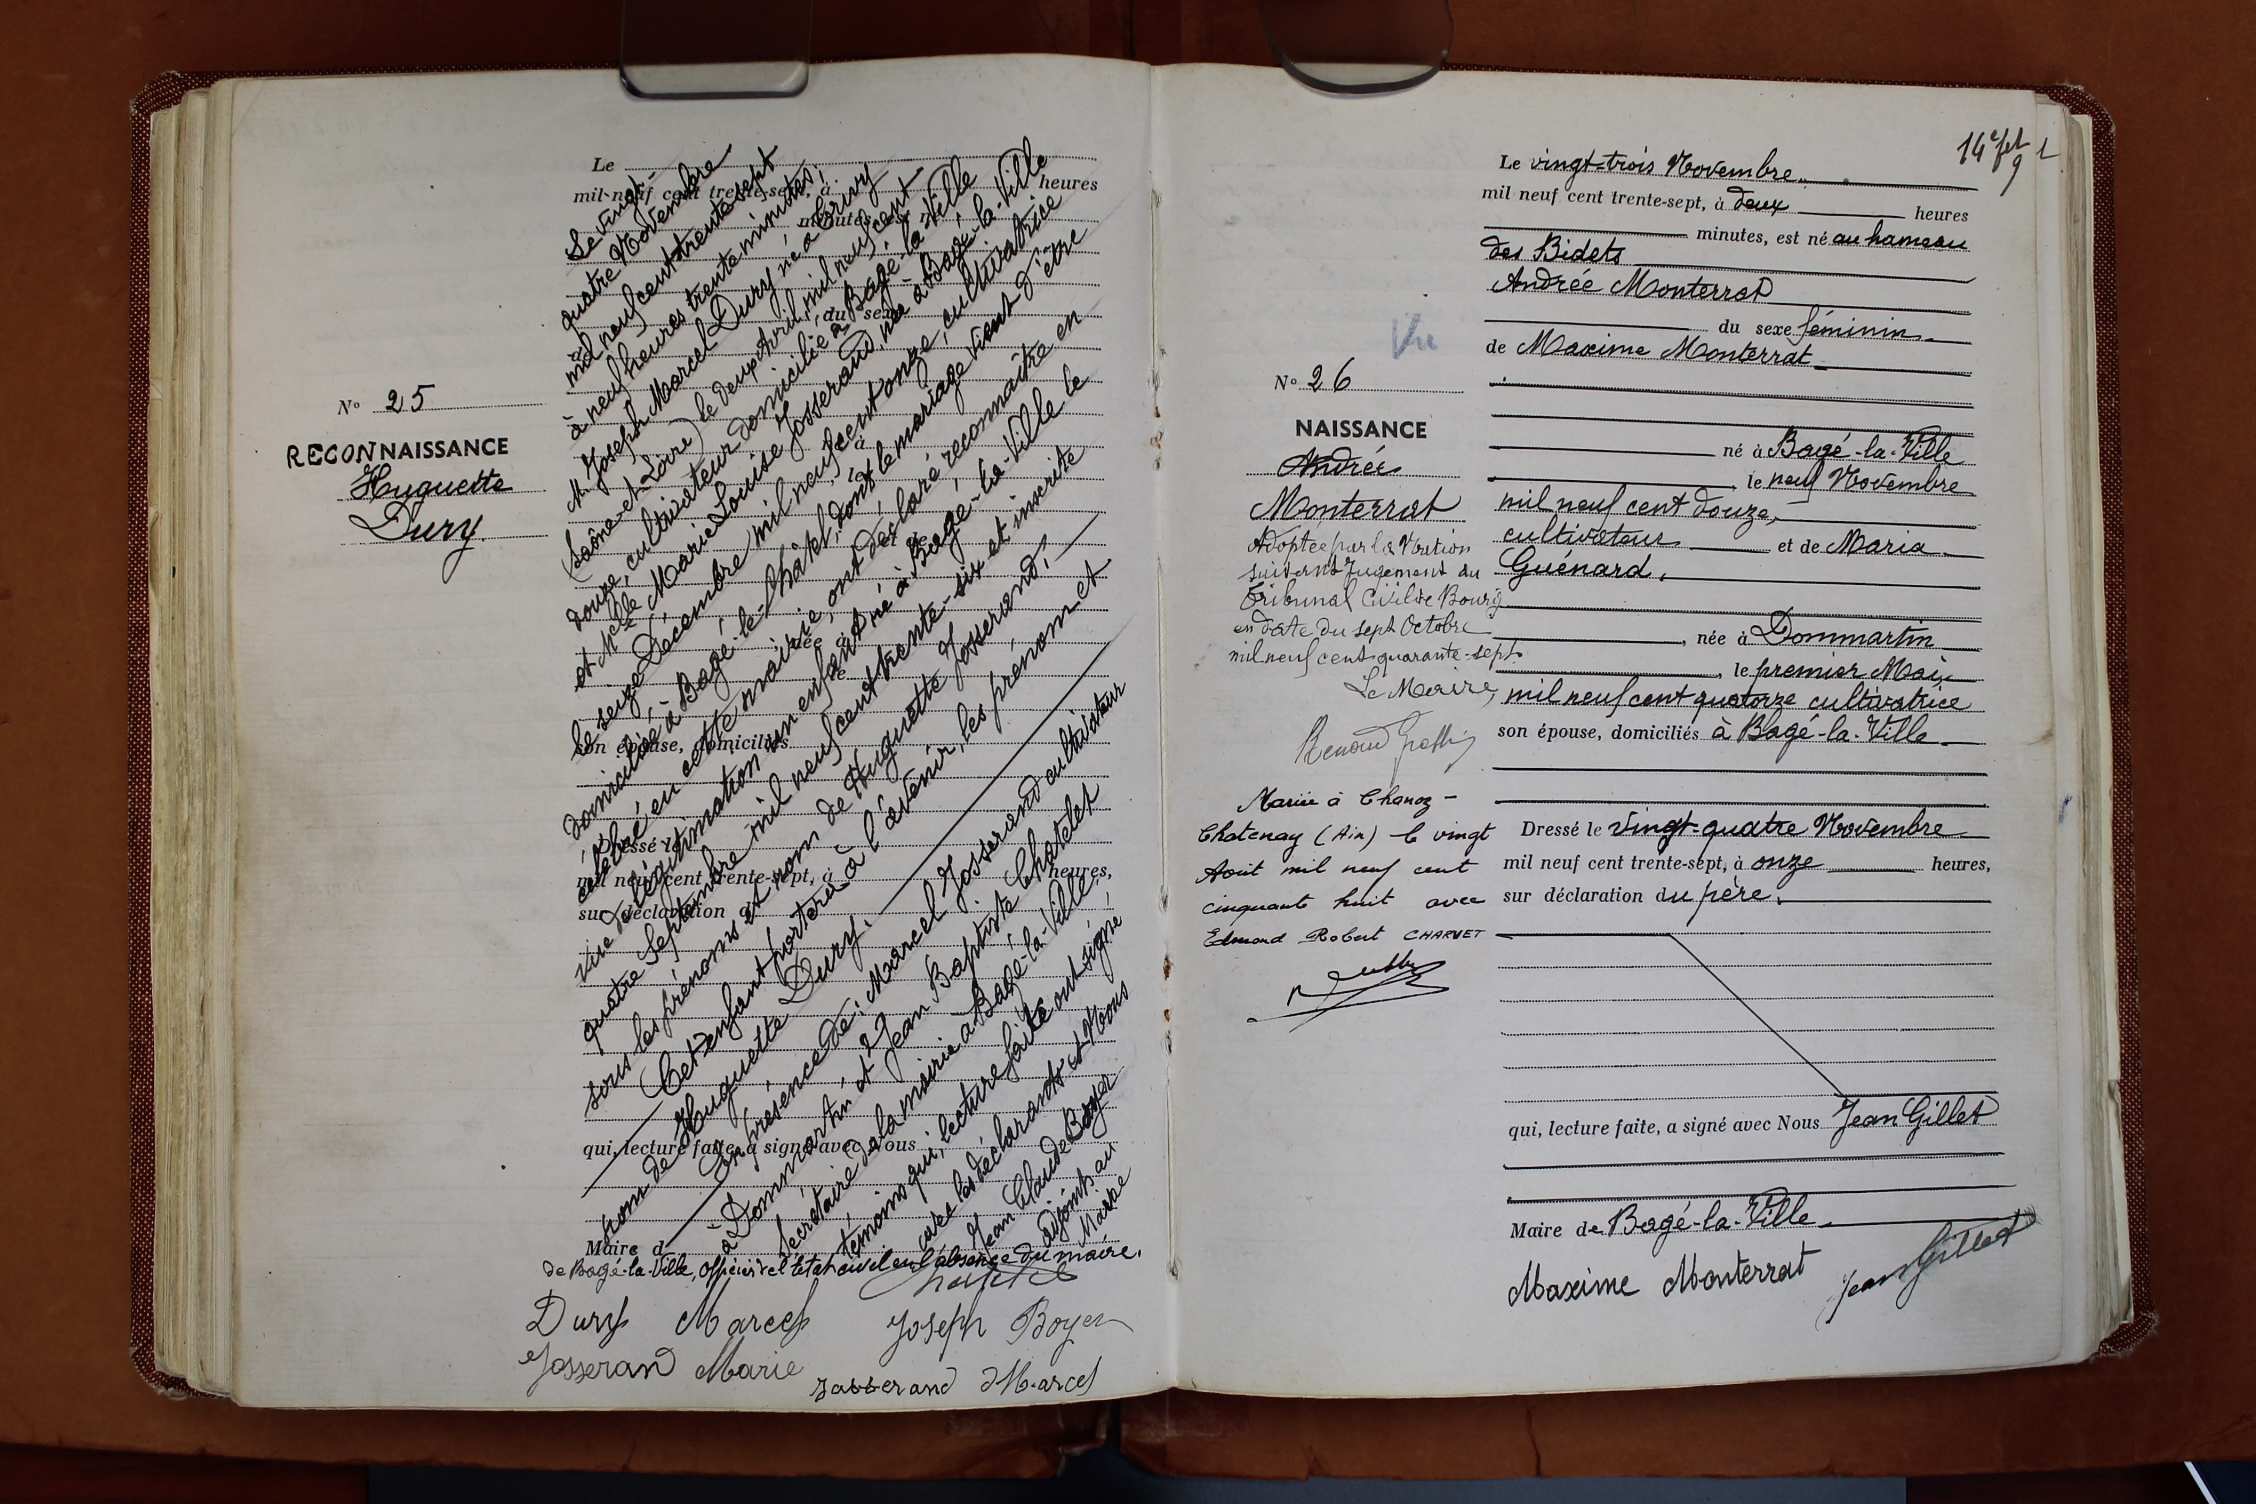 N° 25
RECONNAISSANCE
Huguette
Dury.
Le
mil neuf cent trente-sept, à heures
minutes, est né
du sexe
à
le
et de
née à
le
son épouse, domiciliés
Dressé le
mil neuf cent trente-sept, à heures,
sur déclaration d
qui, lecture faite, a signé avec Nous
Maire d
Le vingt-
quatre Novembre
mil neuf cent trente sept
à neuf heures trente minutes;
M. Joseph Marcel Dury né à Cruzy
(Saône-et-Loire) le deux Avril, mil neuf cent
douze, cultivateur domicilié à Bagé-la-Ville
et Melle Marie Louise Josserand, née à Bagé-la-Ville
le seize Décembre mil neuf cent onze, cultivatrice
domiciliée à Bagé-le-Châtel, dont le mariage vient d'être
célébré en cette mairie, ont déclaré reconnaître en
vue de légitimation un enfant né à Bagé-la-Ville le
quatre Septembre mil neuf cent trente-six et inscrite
sous les prénoms et nom de Huguette Josserand.
Cet enfant portera à l'avenir, les prénom et
nom de Huguette Dury.
En présence de: Marcel Josserand cultivateur
à Dommartin et Jean Baptiste Chatelet
secrétaire de la mairie à Bagé-la-Ville,
témoins qui, lecture faite ont signé
avec les déclarants et Nous
Jean Claude Boyer
adjoint au
Maire
de Bagé-la-Ville, officier de l'état civil en l'absence du maire.
Chatelet
Dury Marcel Joseph Boyer
Josserand Marie Josserand Marcel
14e
Vu
N° 26
NAISSANCE
Andrée
Monterrat
Adoptée par la Nation
suivant Jugement du
Tribunal Civil de Bourg
en date du sept Octobre
mil neuf cent quarante-sept
Le Maire,
Mariée à Chanoz-
Chatenay (Ain) le vingt
Août mil neuf cent
cinquante huit avec
Edmond Robert CHARVET
Le vingt-trois Novembre
mil neuf cent trente-sept, à deux heures
minutes, est né au hameau
des Bidets
Andrée Monterrat
du sexe féminin
de Maxime Monterrat
né à Bagé-la-Ville
, le neuf Novembre
mil neuf cent douze,
cultivateur et de Maria
Guénard,
, née à Dommartin
, le premier Mai
mil neuf cent quatorze cultivatrice
son épouse, domiciliés à Bagé-la-Ville
Dressé le vingt-quatre Novembre
mil neuf cent trente-sept, à onze heures,
sur déclaration du père.
qui, lecture faite, a signé avec Nous Jean Gillet
Maire de Bagé-la-Ville
Maxime Monterrat Jean Gillet